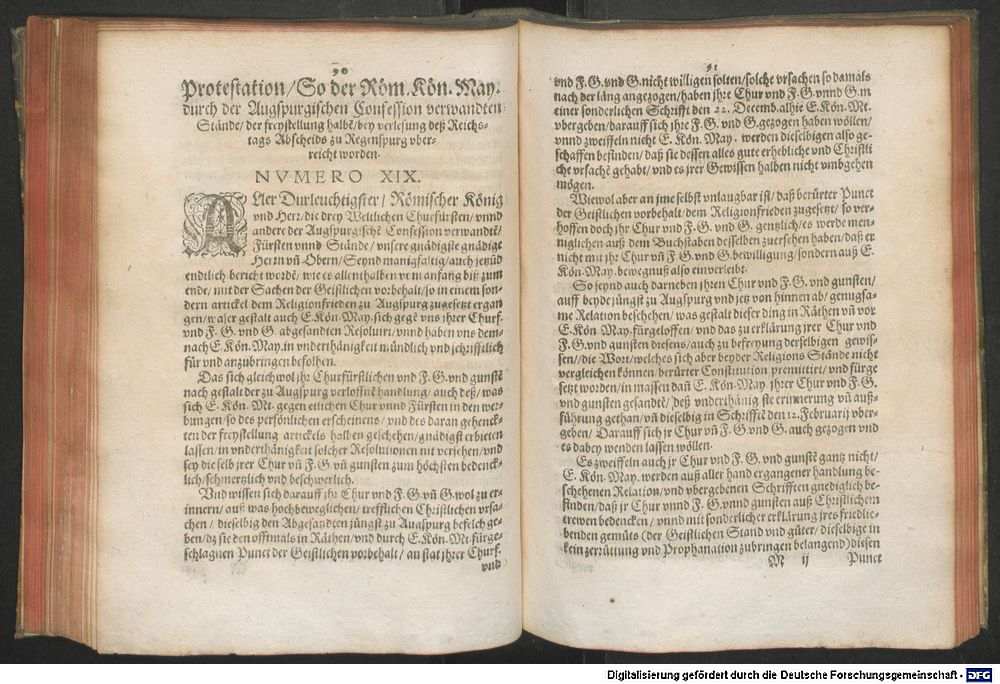 90
Protestation/So der Röm. Kön. May.
durch der Augspurgischen Confession verwandten
Stände/ der freystellung halbē/bey verlesung deß Reichs-
tags Abscheids zu Regenspurg vber-
reicht worden.
NVMERO XIX.
ALler Durleuchtigster/ Römischer König
vnd Herr/die drey Weltlichen Churfürsten/ vnnd
andere der Augspurgischē Confession verwandtē/
Fürsten vnnd Stände/ vnsere gnädigste gnädige
Herrn vñ Obern/ Seynd manigfaltig/auch jetzūd
endtlich bericht wordē/ wie es allenthalben vom anfang biß zum
ende/ mit der Sachen der Geistlichen vorbehalt/so in einem son-
dern artickel dem Religionfrieden zu Augspurg zugesetzt ergan
gen/waser gestalt auch E. Kön. May. sich gegē vns jhrer Churf.
vnd F. G. vnd G. abgesandten Resoluirt/ vnnd haben vns dem-
nach E. Kön. May. in vnderthänigkeit mündlich vnd schrifftlich
für vnd anzubringen befolhen.
Das sich gleichwol jhr Churfürstlichen vnd F. G. vnd gunstē
nach gestalt der zu Augspurg verloffnē handlung/ auch deß/ was
sich E. Kön. Mt. gegen etlichen Chur vnnd Fürsten in den wer-
bungen/ so des persönlichen erscheinens/ vnd des daran gehenck-
ten der freystellung artickels halben geschehen/ gnädigst erbieten
lassen/ in vnderthänigkeit solcher Resolutionen nit versehen/vnd
sey die selb jrer Chur vñ F. G vñ gunsten zum höchsten bedenck-
lich/schmertzlich vnd beschwerlich.
Vnd wissen sich darauff jhr Chur vnd F. G. vñ G. wol zu er-
innern/ auß was hochbeweglichen/ trefflichen Christlichen vrsa-
chen/ dieselbig den Abgesandten jüngst zu Augspurg befelch ge-
ben/dz sie den offtmals in Räthen/vnd durch E. Kön. Mt. fürge-
schlagnen Punct der Geistlichen vorbehalt/ an stat jhrer Churf.
vnd
91
vnd F. G. vnd G. nicht willigen solten/solche vrsachen so damals
nach der läng angezogen/haben jhre Chur vnd F. G. vnnd G. in
einer sonderlichen Schrifft den 22. Decemb. alhie E. Kön. Mt.
vbergeben/darauff sich jhre F. G. vnd G. gezogen haben wöllen/
vnnd zweiffeln nicht E. Kön. May. werden dieselbigen also ge-
schaffen befinden/ daß sie dessen alles gute erhebliche vnd Christli
che vrsachē gehabt/ vnd es jrer Gewissen halben nicht vmbgehen
mögen.
Wiewol aber an jme selbst vnlaugbar ist/ daß berürter Punct
der Geistlichen vorbehalt/ dem Religionfrieden zugesetzt/ so ver-
hoffen doch jhr Chur vnd F. G. vnd G. gentzlich/es werde men-
niglichen auß dem Buchstaben desselben zuersehen haben/daß er
nicht mit jhr Chur vñ F. G vnd G. bewilligung/sondern auß E.
Kön. May. bewegnuß also einverleibt.
So seynd auch darneben jhren Chur vnd F. G. vnd gunsten/
auff beyde jüngst zu Augspurg vnd jetz von hinnen ab/ genugsa-
me Relation beschehen/ was gestalt dieser ding in Räthen vñ vor
E. Kön. May. fürgeloffen/ vnd das zu erklärung jrer Chur vnd
F. G. vnd gunsten diesens/ auch zu befreyung derselbigen gewis-
sen//die Wort/welches sich aber beyder Religions Stände nicht
vergleichen können/ berürter Constitution premittirt/ vnd fürge
setzt worden/ in massen dañ E. Kön. May. jhrer Chur vnd F. G.
vnd gunsten gesandtē/ deß vnderthänigste erinnerung vñ auß-
führung gethan/vñ dieselbig in Schrifftē den 12. Februarij vber-
geben/ Darauff sich jr Chur vñ F. G. vnd G. auch gezogen vnd
es dabey wenden lassen wöllen.
Es zweiffeln auch jr Chur vnd F. G. vnd gunstē gantz nicht/
E. Kön. May. werden auß aller hand ergangener handlung be-
schehenen Relation/ vnd vbergebenen Schrifften gnediglich be-
finden/daß jr Chur vnnd F. G. vnnd gunsten auß Christlichem
trewen bedencken/ vnnd mit sonderlicher erklärung jres friedlie-
benden gemüts (der Geistlichen Stand vnd güter/ dieselbige in
kein zerrüttung vnd Prophanation zubringen belangend) diesen
M ij Punct
Digitalisierung gefördert durch die Deutsche Forschungsgemeinschaft - DFG